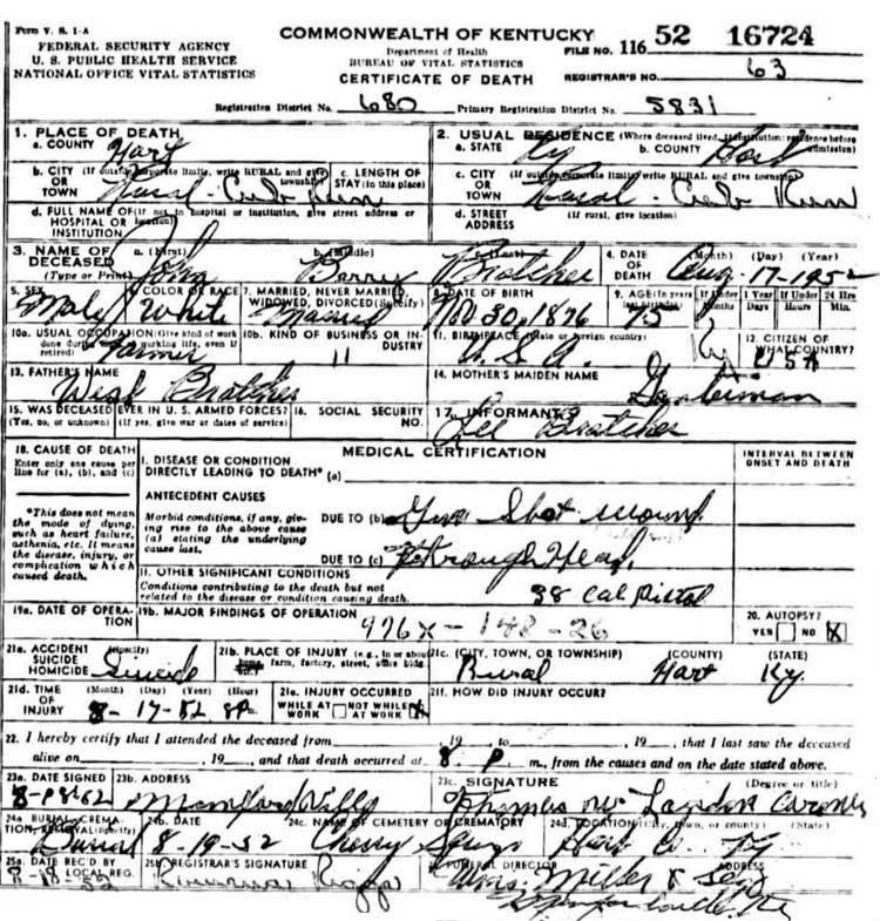 Form V. S. 1-A
FEDERAL SECURITY AGENCY
U. S. PUBLIC HEALTH SERVICE
NATIONAL OFFICE VITAL STATISTICS
COMMONWEALTH OF KENTUCKY
Department of Health
BUREAU OF VITAL STATISTICS
CERTIFICATE OF DEATH
FILE NO. 116 52 16724
REGISTRAR'S NO. 63
Registration District No. 680 Primary Registration District No. 5831
1. PLACE OF DEATH
a. COUNTY Hart
2. USUAL RESIDENCE (Where deceased lived. If institution: residence before admission)
a. STATE Ky b. COUNTY Hart
b. CITY OR TOWN (If outside corporate limits, write RURAL and give township) Rural - Cub Run
c. LENGTH OF STAY (in this place)
c. CITY OR TOWN (If outside corporate limits, write RURAL and give township) Rural - Cub Run
d. FULL NAME OF HOSPITAL OR INSTITUTION (If not in hospital or institution, give street address or location)
d. STREET ADDRESS (If rural, give location)
3. NAME OF DECEASED (Type or Print) a. (First) John b. (Middle) Barry c. (Last) Bratcher
4. DATE OF DEATH (Month) (Day) (Year) Aug. 17-1952
5. SEX Male
6. COLOR OR RACE White
7. MARRIED, NEVER MARRIED, WIDOWED, DIVORCED (Specify) Married
8. DATE OF BIRTH Nov 30, 1876
9. AGE (In years last birthday) 75 If Under 1 Year Months Days If Under 24 Hrs Hours Min.
10a. USUAL OCCUPATION (Give kind of work done during most of working life, even if retired) Farmer
10b. KIND OF BUSINESS OR INDUSTRY "
11. BIRTHPLACE (State or foreign country) U.S.A. Ky
12. CITIZEN OF WHAT COUNTRY? USA
13. FATHER'S NAME Wesh Bratcher
14. MOTHER'S MAIDEN NAME
15. WAS DECEASED EVER IN U. S. ARMED FORCES? (Yes, no, or unknown) (If yes, give war or dates of service)
16. SOCIAL SECURITY NO.
17. INFORMANT Lee Bratcher
18. CAUSE OF DEATH
Enter only one cause per line for (a), (b), and (c)
MEDICAL CERTIFICATION
INTERVAL BETWEEN ONSET AND DEATH
I. DISEASE OR CONDITION DIRECTLY LEADING TO DEATH* (a)
*This does not mean the mode of dying, such as heart failure, asthenia, etc. It means the disease, injury, or complication which caused death.
ANTECEDENT CAUSES
Morbid conditions, if any, giving rise to the above cause (a) stating the underlying cause last.
DUE TO (b) Gun Shot wound
DUE TO (c) through Head,
II. OTHER SIGNIFICANT CONDITIONS
Conditions contributing to the death but not related to the disease or condition causing death.
38 Cal Pistol
19a. DATE OF OPERATION
19b. MAJOR FINDINGS OF OPERATION
976X - 148 - 26
20. AUTOPSY? YES NO X
21a. ACCIDENT SUICIDE HOMICIDE (Specify) Suicide
21b. PLACE OF INJURY (e.g., in or about home, farm, factory, street, office bldg., etc.)
21c. (CITY, TOWN, OR TOWNSHIP) (COUNTY) (STATE)
Rural Hart Ky.
21d. TIME OF INJURY (Month) (Day) (Year) (Hour) 8-17-52 8P m.
21e. INJURY OCCURRED WHILE AT WORK NOT WHILE AT WORK X
21f. HOW DID INJURY OCCUR?
22. I hereby certify that I attended the deceased from , 19 , to , 19 , that I last saw the deceased
alive on , 19 , and that death occurred at 8. P m., from the causes and on the date stated above.
23a. DATE SIGNED 8-18-52
23b. ADDRESS Munfordville
23c. SIGNATURE (Degree or title) Thomas W. Landon Coroner
24a. BURIAL, CREMATION, REMOVAL (Specify) Burial
24b. DATE 8-19-52
24c. NAME OF CEMETERY OR CREMATORY Cherry Springs
24d. LOCATION (City, town, or county) (State) Hart Co. Ky
25a. DATE REC'D BY LOCAL REG. 8-18-52
25b. REGISTRAR'S SIGNATURE Riggs
26. FUNERAL DIRECTOR ADDRESS
Wms. Miller & Seay